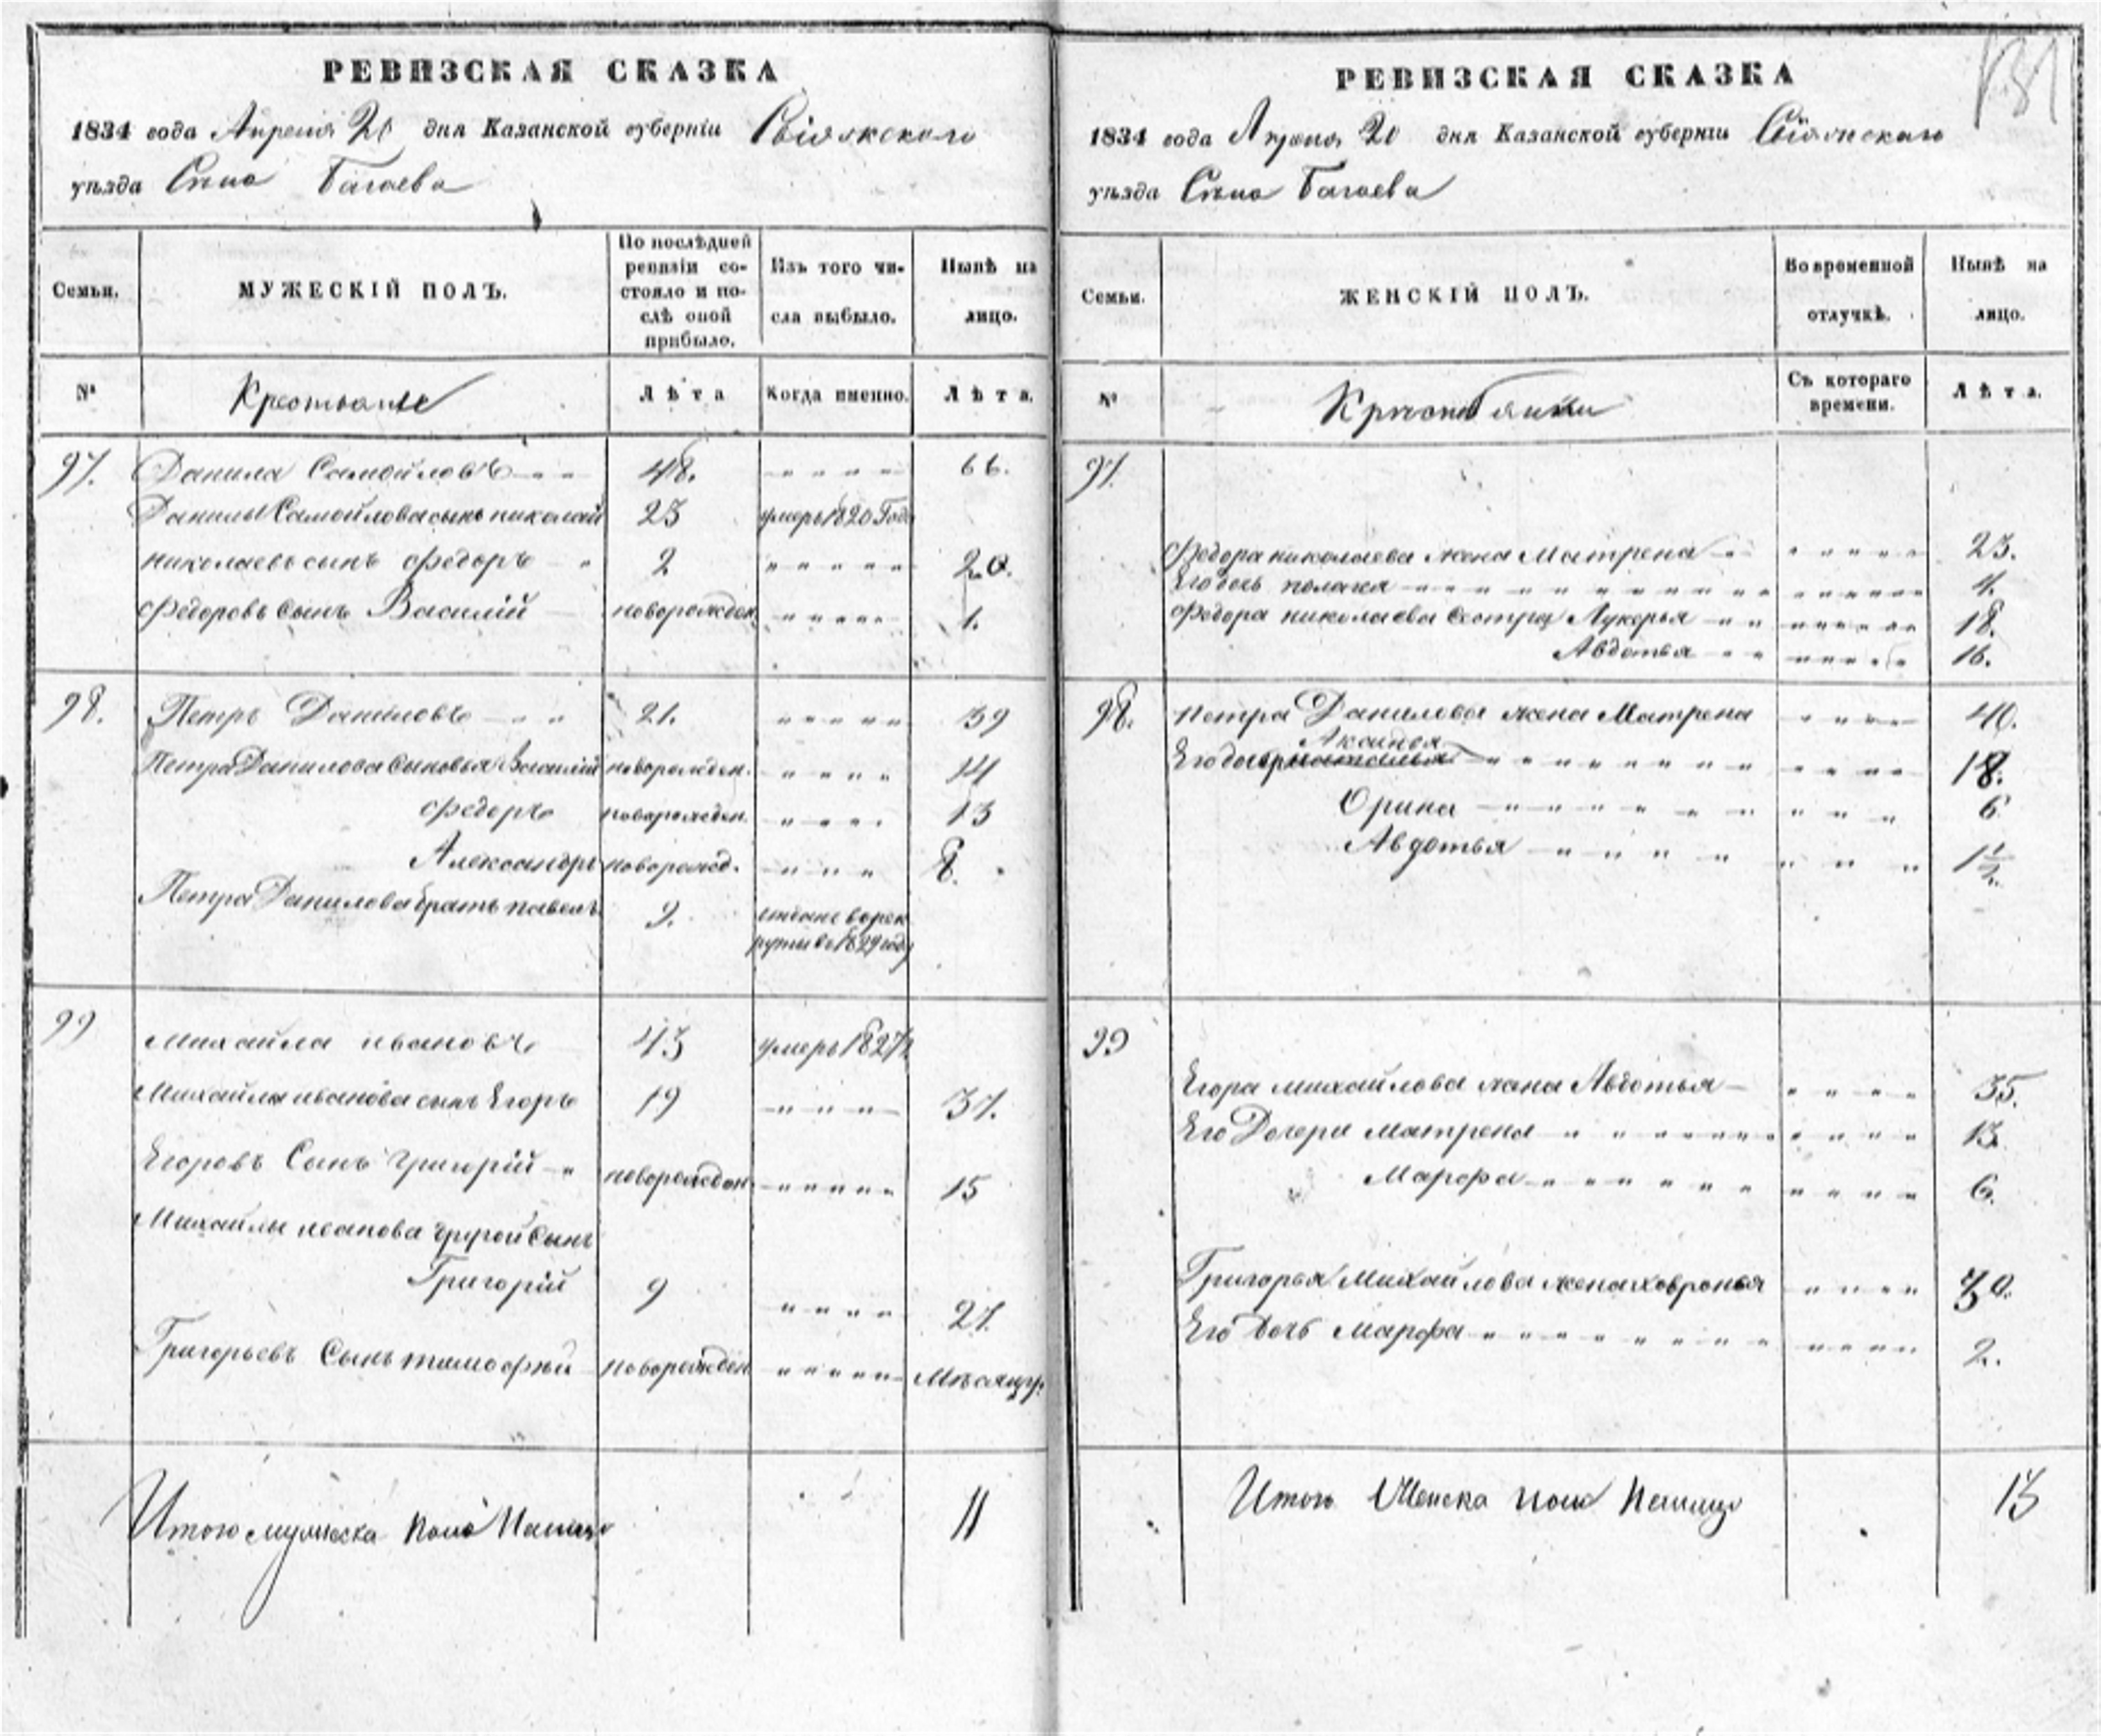 131
РЕВИЗСКАЯ СКАЗКА
1834 года Апреля 20 дня Казанской губерніи Свіяжскаго
уѣзда Село Багаева
Семьи.
МУЖЕСКІЙ ПОЛЪ.
По послѣдней ревизіи состояло и послѣ оной прибыло.
Изъ того числа выбыло.
Нынѣ на лицо.
№
Крестьяне
Лѣта
Когда именно.
Лѣта.
97. Данила Самойловъ 48. 66.
Данилы Самойлова сынъ николай 23 умеръ 1820 Года
николаевъ сынъ федоръ 2 20.
федоровъ Сынъ Василій новорожден. 1.
98. Петръ Даниловъ 21. 39
Петра Данилова Сыновья Василій новорожден. 14
федоръ новорожден. 13
Александръ новорожд. 8.
Петра Данилова братъ павелъ 9. отданъ в рек
руты въ 1829 году
99 михайла ивановъ 43 умеръ 1827
Михайла иванова сынъ Егоръ 19 37.
Егоровъ Сынъ григорій новорожден 15
Михайлы иванова другой Сынъ
Григорій 9 27.
Григорьевъ Сынъ тимофѣй новорожден Мѣсяцу.
Итого мужеска пола Налицо 11
РЕВИЗСКАЯ СКАЗКА
1834 года Апреля 20 дня Казанской губерніи Свіяжскаго
уѣзда Село Багаева
Семьи.
ЖЕНСКІЙ ПОЛЪ.
Во временной отлучкѣ.
Нынѣ на лицо.
№
Крестьянки
Съ котораго времени.
Лѣта.
97.
федора николаева жена Матрена 23.
Его дочь полагея 4.
федора николаева Сестры Лукерья 18.
Авдотья 16.
98. петра Данилова жена Матрена 40.
Аксинья
Его дочери 18.
Орина 6
Авдотья 1½
99
Егора михайлова жена Авдотья 35.
Его Дочери матрена 13.
Марфа 6.
Григорья Михайлова жена ховронья 30.
Его дочь марфа 2.
Итого Женска пола Налицо 13